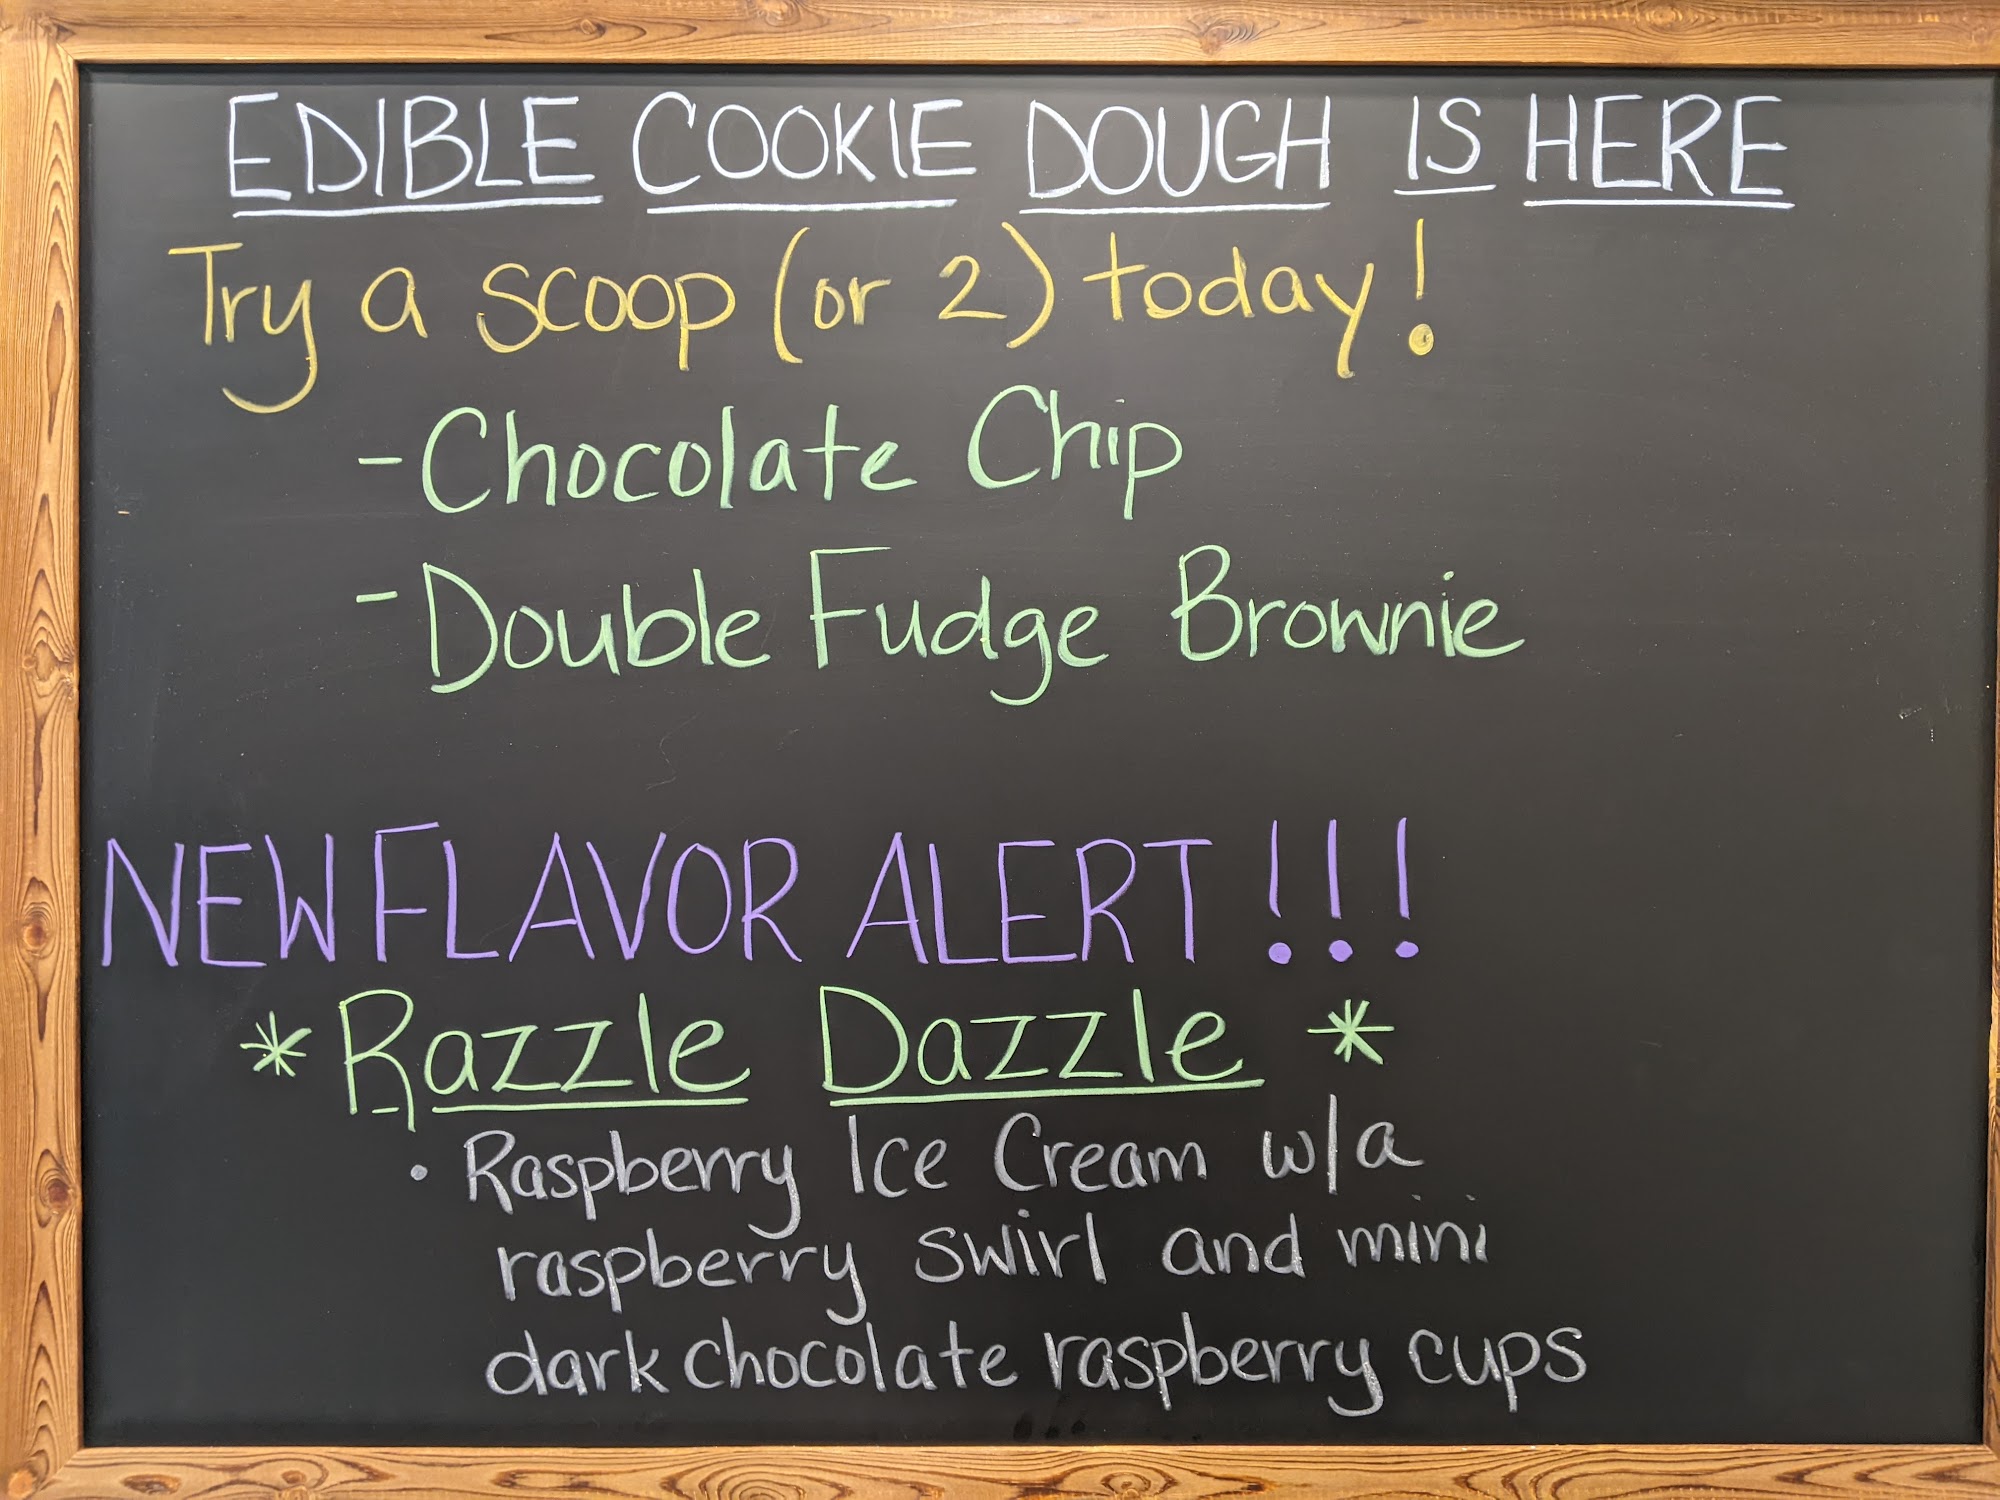 EDIBLE COOKIE DOUGH IS HERE
Try a scoop (or 2) today!
- Chocolate Chip
- Double Fudge Brownie
NEW FLAVOR ALERT!!!
* Razzle Dazzle *
• Raspberry Ice Cream w/a
raspberry swirl and mini
dark chocolate raspberry cups